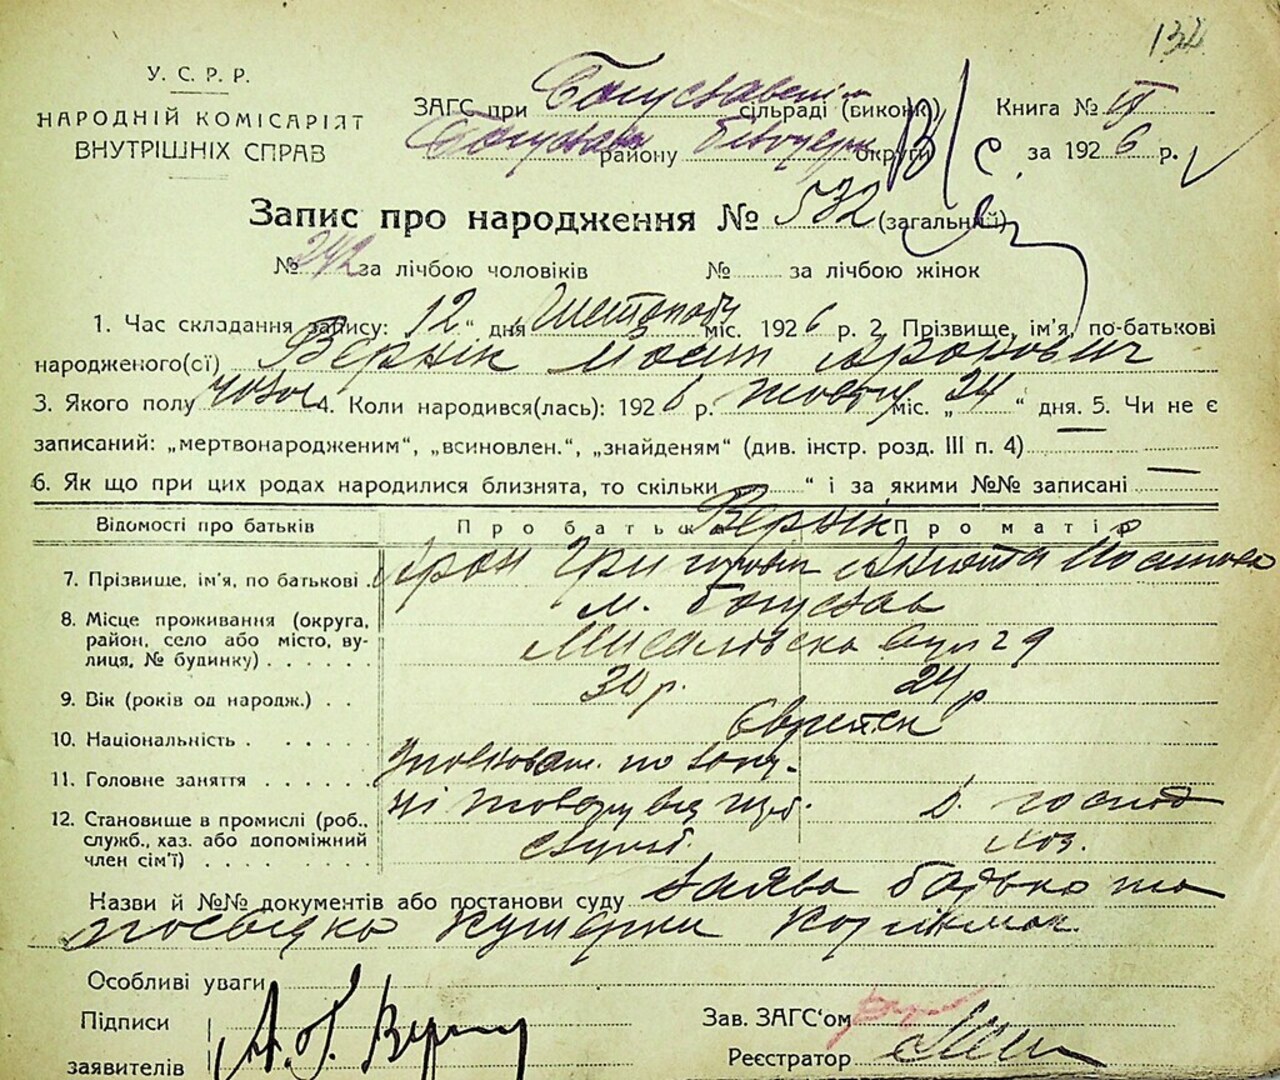 132
У. С. Р. Р.
НАРОДНІЙ КОМІСАРІЯТ
ВНУТРІШНІХ СПРАВ
ЗАГС при Богуславській сільраді (виконк)
Богуславськ району Білоцерк округи
Книга № VI
за 1926 р.
Запис про народження № 532 (загальний)
№ 242 за лічбою чоловіків № за лічбою жінок
1. Час складання запису: „12“ дня Листопаду міс. 1926 р. 2. Прізвище, ім'я, по-батькові
народженого(сї) Вернік Йосип Аронович
3. Якого полу чолов 4. Коли народився(лась): 1926 р. Жовтн міс. „24“ дня. 5. Чи не є
записаний: „мертвонародженим“, „всиновлен.“, „знайденям“ (див. інстр. розд. III п. 4) —
6. Як що при цих родах народилися близнята, то скільки “ і за якими №№ записані —
Відомості про батьків Про батька Про матір
Вернік
7. Прізвище, ім'я, по батькові Арон Григорови Анюта Йосипова
8. Місце проживання (округа, район, село або місто, вулиця, № будинку)
м. Богуслав
вул 29
9. Вік (років од нарoдж.) 30 р. 24 р
10. Національність Єврейск
11. Головне заняття по
12. Становище в промислі (роб., служб., хаз. або допоміжний член сім'ї)
товару від д. господ
служб. хоз.
Назви й №№ документів або постанови суду Заява батька та
посвідка Кушерки
Особливі уваги
Підписи заявителів А. Г. Верник
Зав. ЗАГС‘ом
Реєстратор